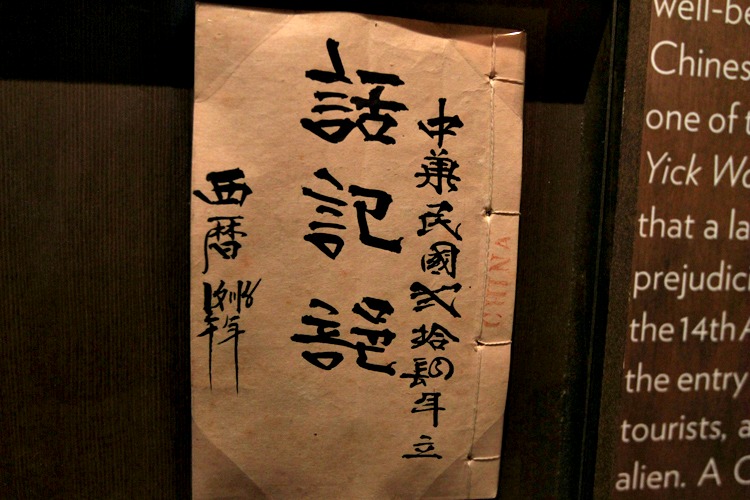 中華民國弍拾肆年立
話記
西暦
CHINA
well-be
Chines
one of t
Yick Wo
that a la
prejudic
the 14th A
the entry
tourists, a
alien. A C